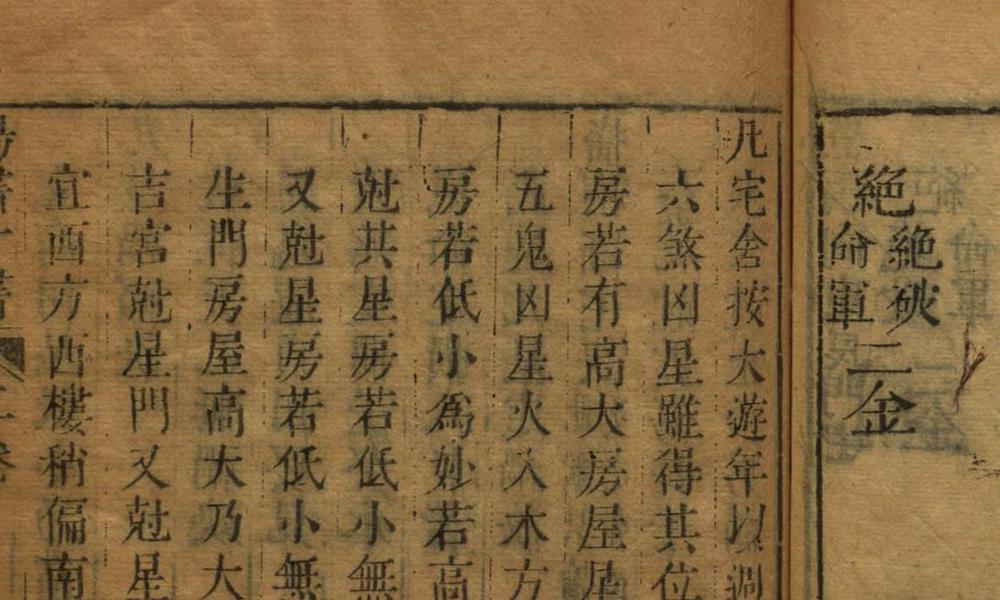 絶
絶破
命軍
二金
凡宅舍按大遊年以週
六煞凶星雖得其位
房若有高大房屋星
五鬼凶星火入木方
房若低小爲妙若高
尅其星房若低小無
又尅星房若低小無
生門房屋高大乃大
吉宮尅星門又尅星
宜酉方西樓稍偏南